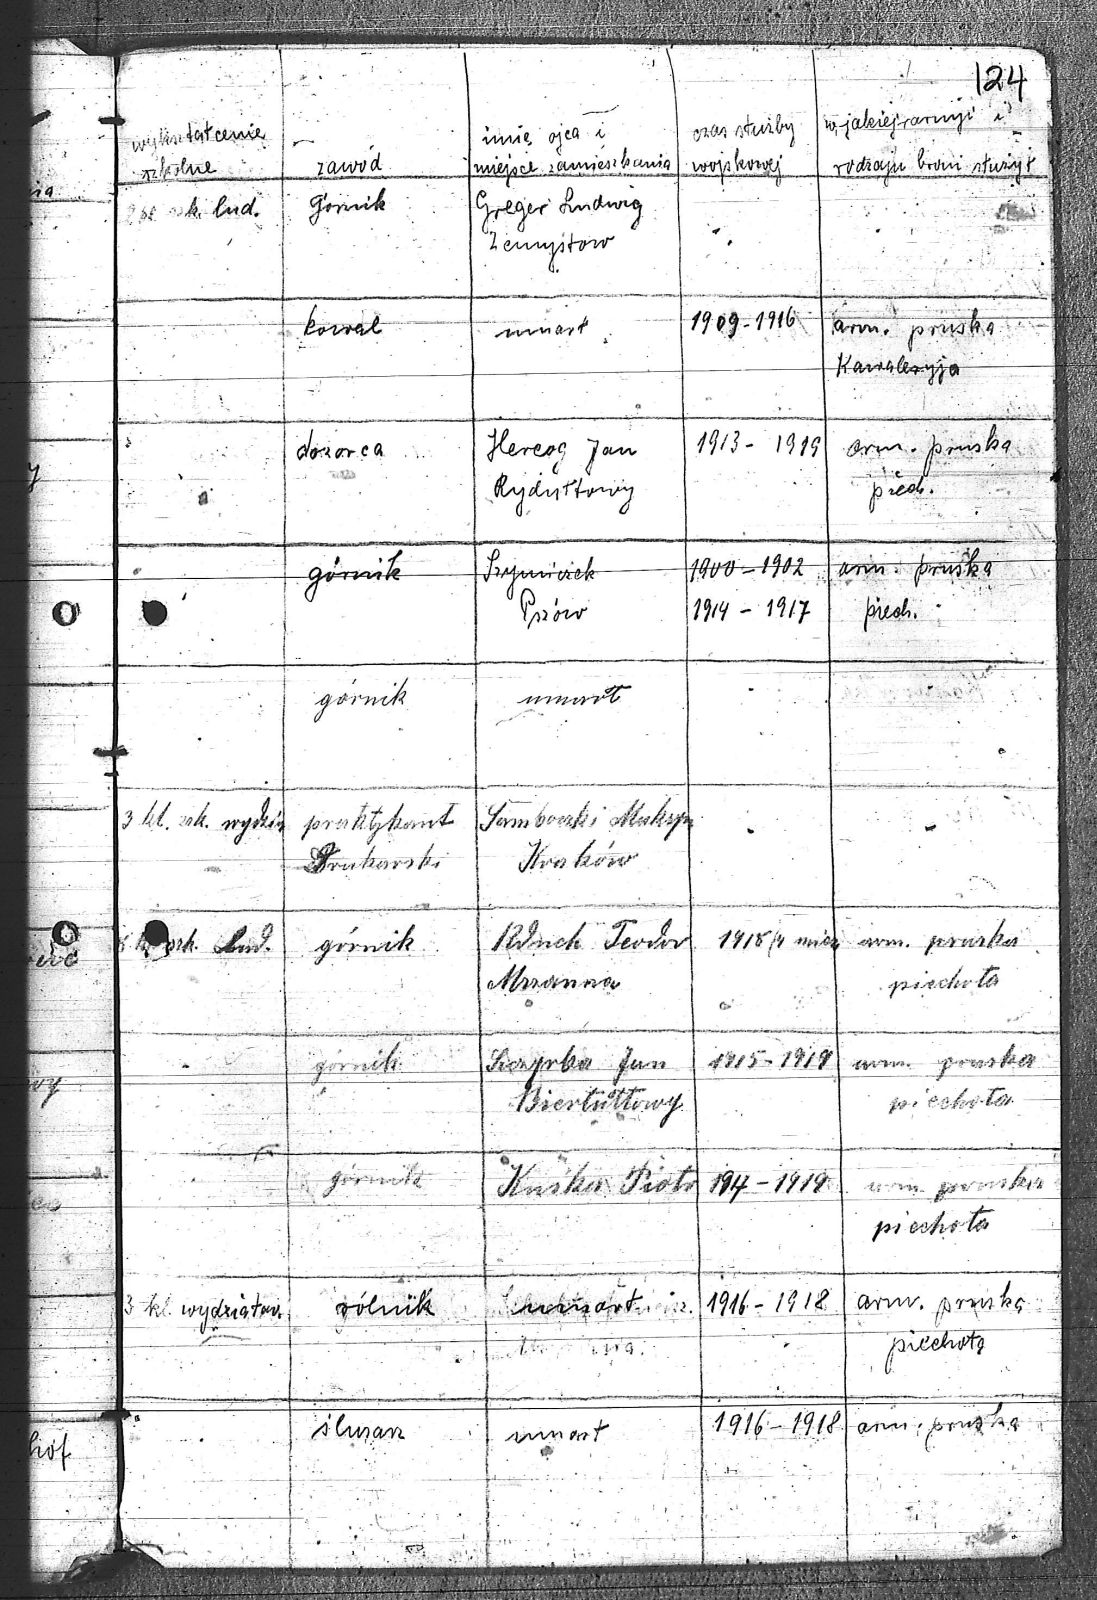 124
wykształcenie szkolne
zawód
imię ojca i miejsce zamieszkania
czas służby wojskowej
w jakiej armji i rodzaju broni służył
szk. lud. górnik Greger Ludwig
kowal umarł 1909-1916 arm. pruska
Kawaleryja
dozorca Hercog Jan 1913 - 1919 arm. pruska
Rydułtowy piech.
górnik Szymiczek 1900-1902 arm. pruska
Pszów 1914 - 1917 piech.
górnik umarł
3 kl. szk. wydzia praktykant
Drukarski Kraków
kl. szk. lud. górnik Teodor 1918/4 arm. pruska
Mszanna piechota
górnik Szczyrba Jan 1915-1919 arm. pruska
Biertułtowy piechota
górnik Kuśka Piotr 194-1919 arm. pruska
piechota
3 kl. wydziałow. rólnik umarł 1916-1918 arm. pruska
piechota
ślusarz umarł 1916-1918 arm. pruska
hof